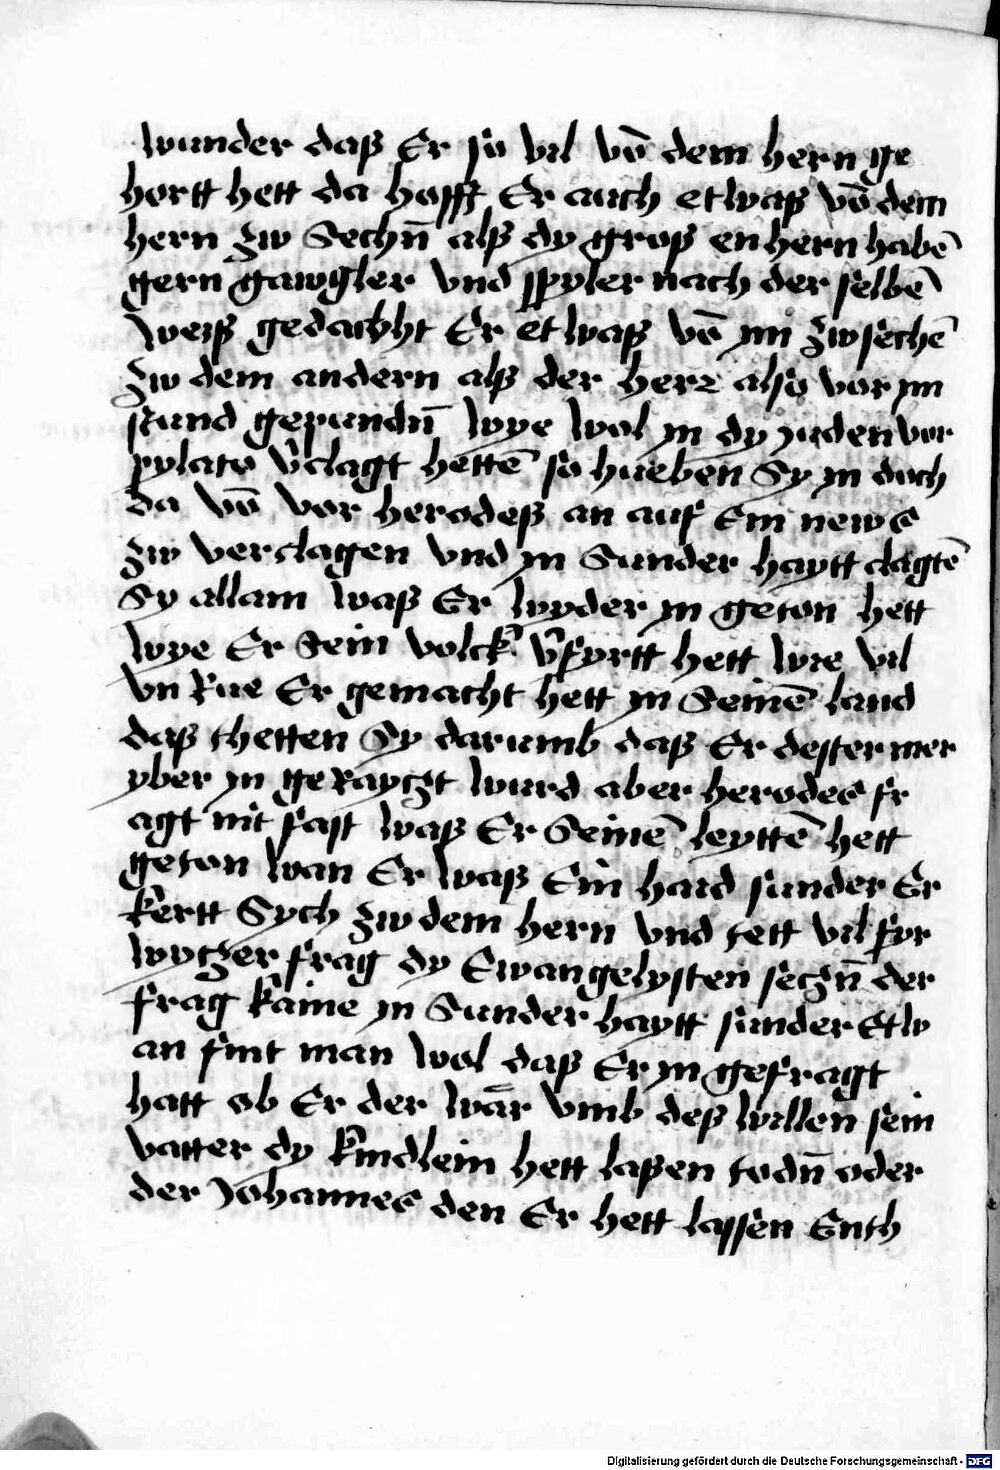 wunder daß Er so vil vō dem hern ge
hortt hett da hofft Er auch etwaß vō dem
hern zw Sechn̄ alß dy groß en hern habē
gern gawgler vnd spyler nach der selbē
weiß gedachht Er etwaß vō ym zw sechē
zw dem andern alß der herr also vor ym
stund gepundn̄ wye wol yn dy juden vor
pylato v̄clagt hettē so hueben Sy yn doch
da vō vor herodeß an auf Ein news
zw verclagen vnd yn Sunder haytt clagtē
Sy allain waß Er wyder yn geton hett
wye Er Sein volck v̄fyrtt hett wie vil
vn Rue Er gemacht hett yn Seinē land
daß thetten Sy darumb daß Er dester mer
yber yn geRayczt wurd aber herodes fr
agt nit fast waß Er Seinē leyttē hett
geton wan Er waß Ein haid sunder Er
kertt Sych zw dem hern vnd tett vil fyr
wyczer frag dy Ewangelysten seczn̄ der
frag kaine yn Sunder haytt sunder Etw
an fint man wol daß Er yn gefragt
hatt ob Er der wär vmb deß willen sein
vatter dy kindlein hett laßen todn̄ oder
der Johannes den Er hett lassen Enth
Digitalisierung gefördert durch die Deutsche Forschungsgemeinschaft - DFG